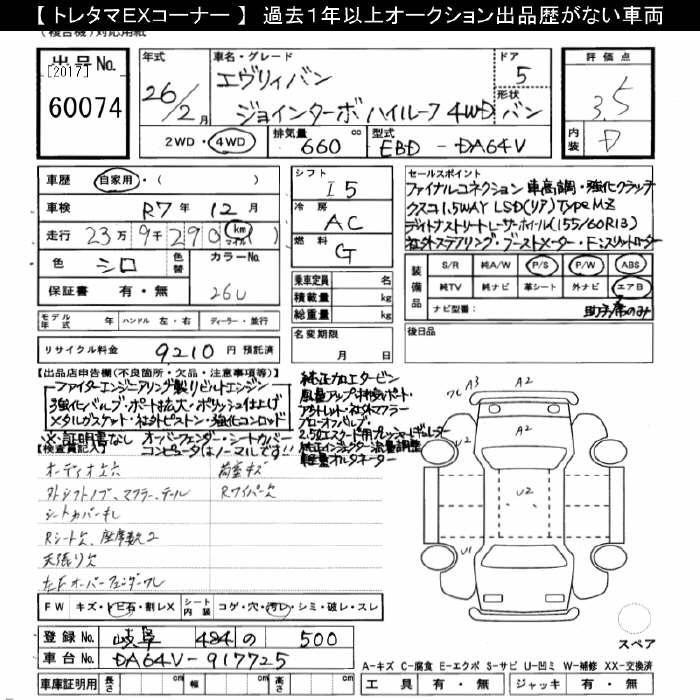 【 トレタマEXコーナー 】 過去1年以上オークション出品歴がない車両
(複合機)対応用紙
出品No.
[2017]
60074
年式
26/2月
車名・グレード
エヴリィバン
ジョインターボ ハイルーフ 4WD バン
ドア
5
形状
2WD・4WD
排気量
660 cc
型式
EBD - DA64V
評価点
3.5
内装
D
車歴 自家用・( )
車検 R7年 12月
走行 23万 9千 290 km マイル
色 シロ
色替
カラーNo.
26U
保証書 有・無
シフト
I5
冷房
AC
燃料
G
乗車定員 名
積載量 kg
総重量 kg
セールスポイント
ファイナルコネクション 車高調・強化クラッチ
クスコ1.5WAY LSD(リア)TYPE MZ
デイトナストリートレーサーホイール(155/60R13)
社外ステアリング・ブーストメーター・Fスリットローター
装備品
S/R 純A/W P/S P/W ABS
純TV 純ナビ 革シート 外ナビ エアB
ナビ型番: 助手席のみ
モデル年式 年 ハンドル 左・右 ディーラー・並行
名変期限
月 日
後日品
リサイクル料金 9210 円 預託済
【出品店申告欄(不良箇所・欠品・注意事項等)】
ファイターエンジニアリング製リビルトエンジン
強化バルブ・ポート拡大・ポリッシュ仕上げ
メタルガスケット・社外ピストン・強化コンロッド
※・証明書なし オーバーフェンダー・シートカバー
コンピュータはノーマルです!!
純正加工タービン
風量アップ
アウトレット・社外マフラー
ブローオフバルブ・
2.5ℓエスクード用プレッシャーレギュレーター
純正インジェクター流量調整
軽量オルタネーター
【検査員記入】
オーディオ欠穴
外シフトノブ、マフラー、テール
シートカバーキレ
Rシート欠、座席数2
天張り欠
左Fオーバーフェンダーワレ
荷室キズ
Rワイパー欠
ワレ A3 A2
U2 A2
U2
U1
A2
FW キズ・トビ石・割レX
シート内装 コゲ・穴・汚レ・シミ・破レ・スレ
登録No. 岐阜 484 の 500
車台No. DA64V-917725
車庫証明用 長さ cm 幅 cm 高さ cm
スペア
A-キズ C-腐食 E-エクボ S-サビ U-凹ミ W-補修 XX-交換済
工具 有・無 ジャッキ 有・無